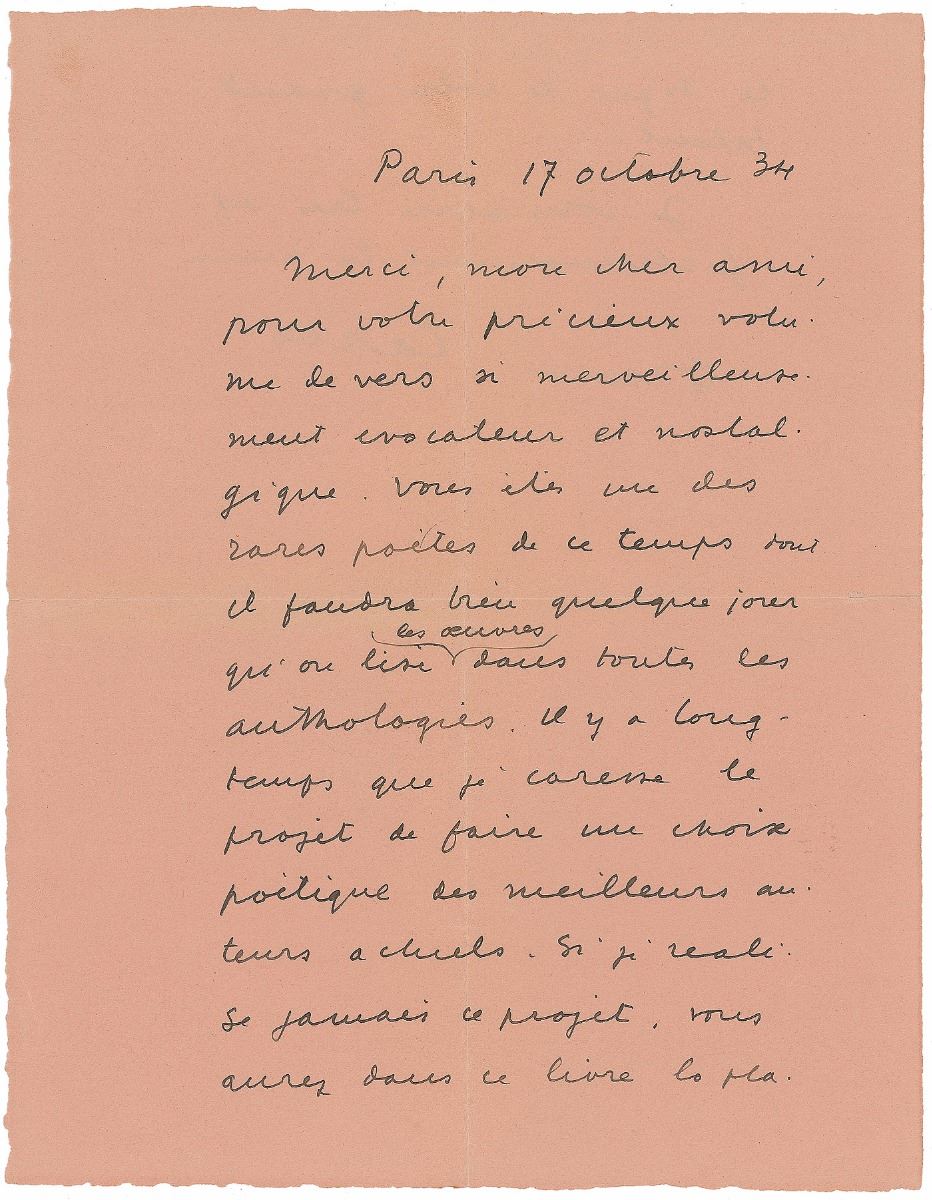 Paris 17 octobre 34
Merci, mon cher ami,
pour votre précieux volu-
me de vers si merveilleuse-
ment evocateur et nostal-
gique. Vous êtes un des
rares poètes de ce temps dont
il faudra bien quelque jour
les œuvres
qu'on lise dans toutes les
anthologies. Il y a long-
temps que je caresse le
projet de faire un choix
poétique des meilleurs au-
teurs actuels. Si je reali-
se jamais ce projet, vous
aurez dans ce livre la pla-